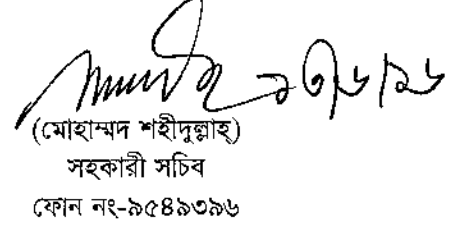 (মোহাম্মদ শহীদুল্লাহ্)
সহকারী সচিব
ফোন নং-৯৫৪৯৩৯৬